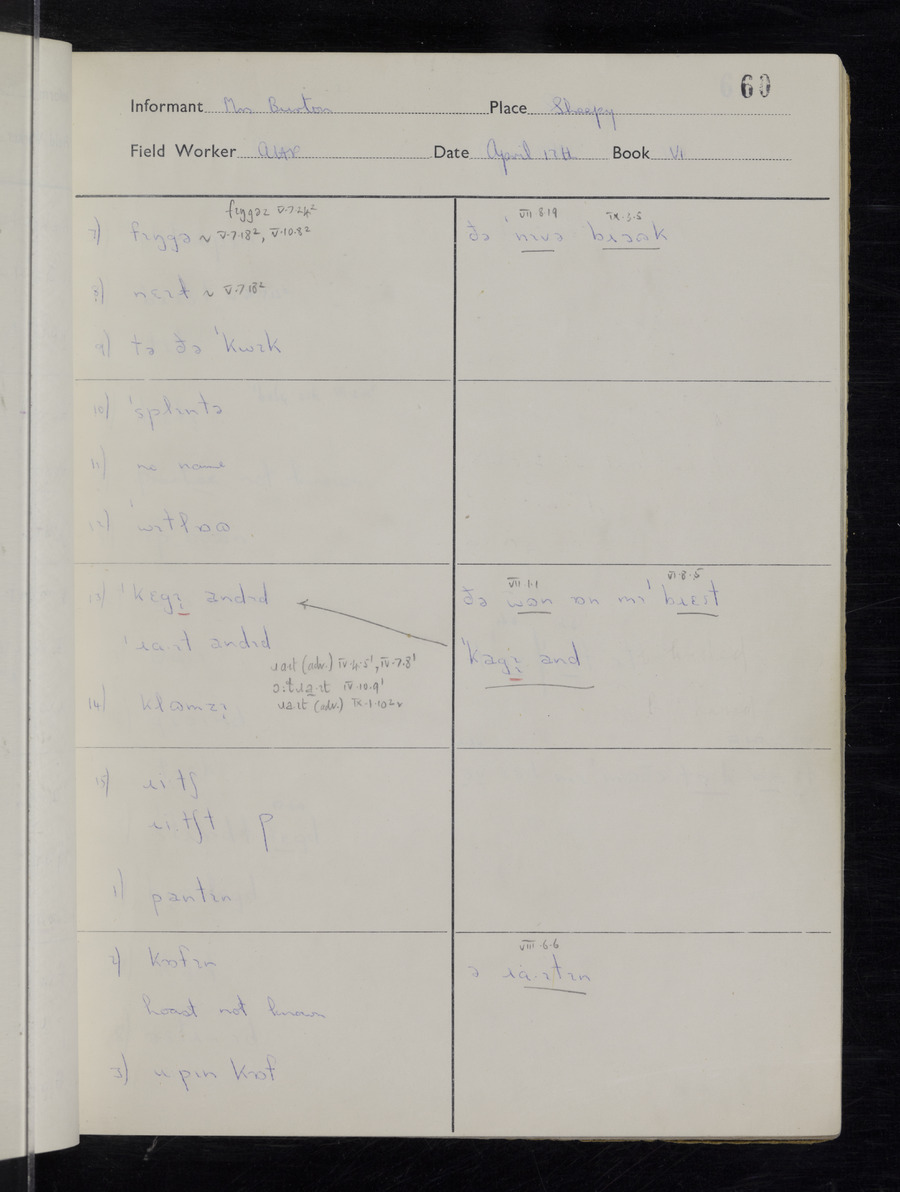 60
Informant Mrs Burton Place Sheepy
Field Worker Date April 17th Book VI
fɪŋgəz V.7.24²
7) fɪŋgə ~ V.7.18², V.10.8²
8) nɛɪt ~ V.7.18²
9) tə ðə ˈkwɪk
10) ˈsplɪntə
11) no name
12) ˈwɪtloʊ
13) ˈkɛgɪ andɪd
ˈɹaɪt andɪd
ɹaɪt (adv.) IV.4.5¹, IV.7.8¹
IV.10.9¹
ɹaɪt (adv.) IX.1.10²
14) klɒmzɪ
15) ɹiːtʃ
ɹiːtʃt p
1) pantɪn
2) kɒfɪn
hoast not known
3) kɒf
VII.8.19 IX.3.5
ðə
VII.1.1 VI.8.5
ðə wɒn ɒn mɪ bɹɛst
ˈkagɪ and
VIII.6.6
ə